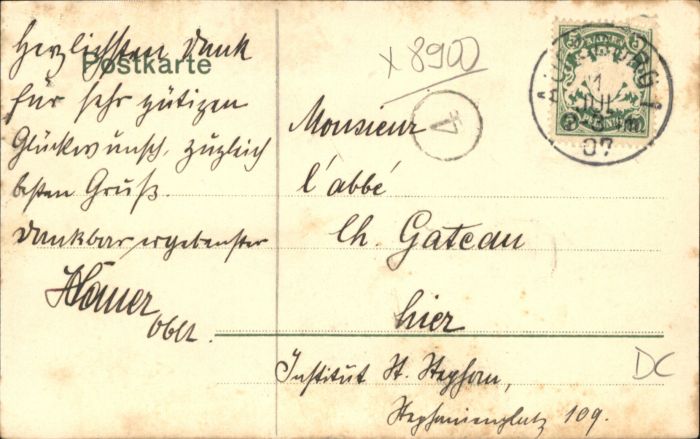 Postkarte
Herzlichsten Dank
für sehr gütigen
Glückwunsch, zugleich
besten Gruß.
Dankbar ergebenster
Oblt.
x 8900
4
Monsieur
l'abbé
Ch. Gateau
hier
Institut St. Stephan,
Stephanienplatz 109.
DC
AUGSBURG 1
1 JUL
07
5 5
BAYERN
PFENNIG